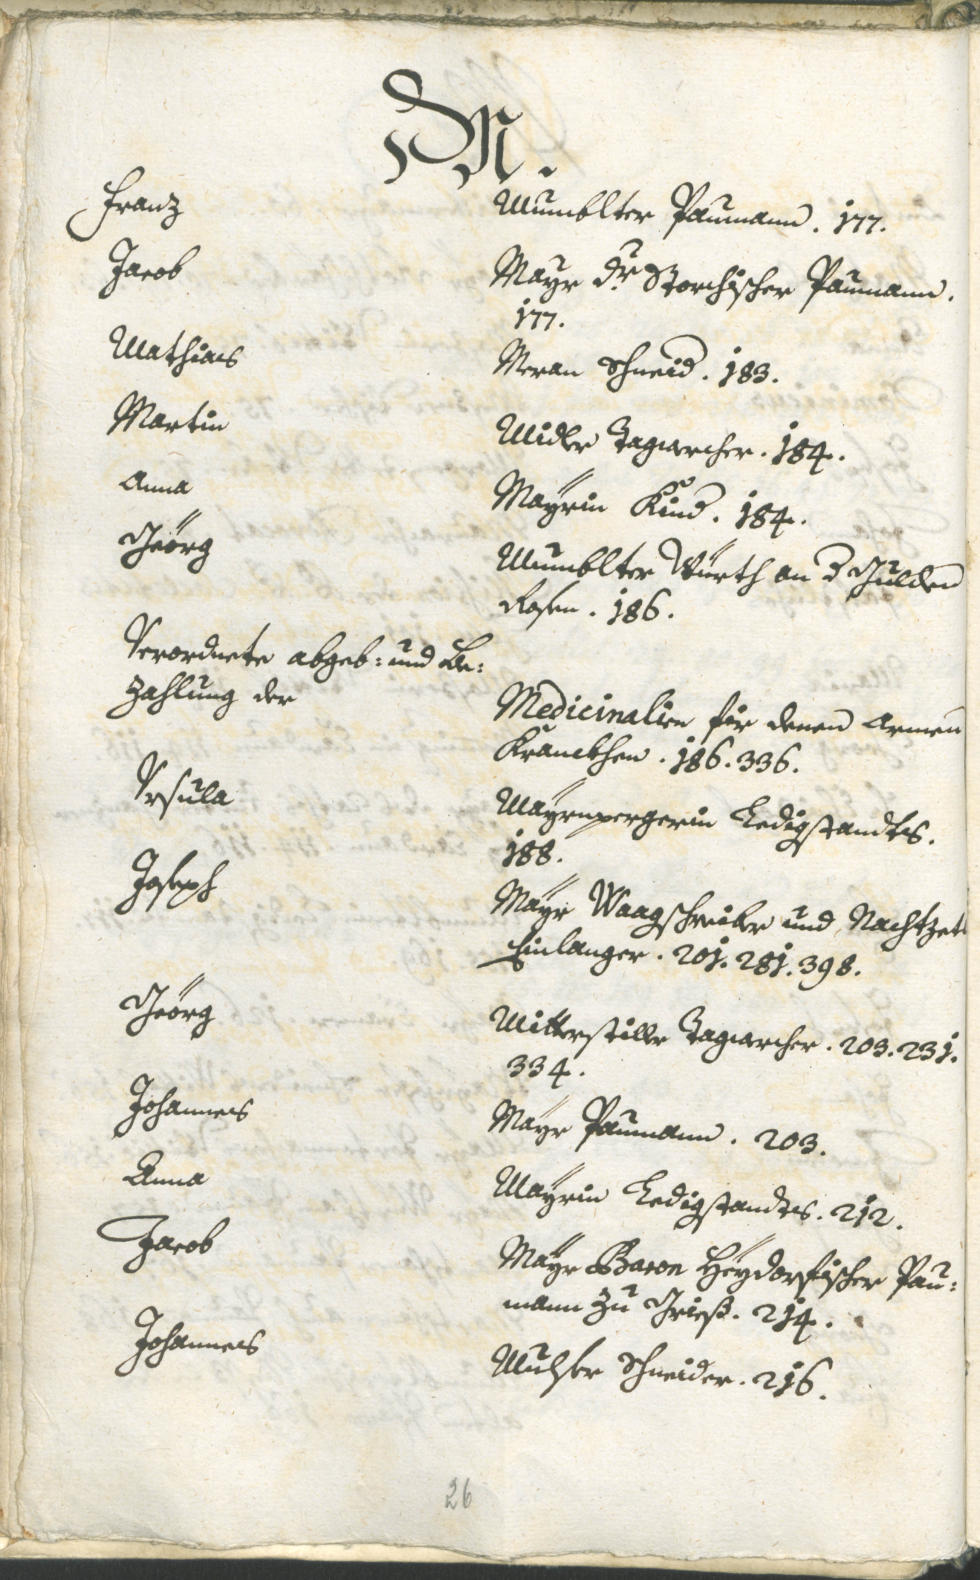 M.
Franz Mumblter Paumann. 177.
Jacob Mayr Dr. Storchischer Paumann.
177.
Mathias Meran Schneid. 183.
Martin Midler Tagwercher. 184.
Anna Maÿrin Kind. 184.
Geörg Mumblter Würth an d Gulden
Rosen. 186.
Verordnete abgeb: und Be:
zahlung der Medicinalien für denen Armen
Kranckhen. 186. 336.
Vrsula Maÿrnpergerin Ledigstandts.
188.
Joseph Maÿr Waagschreiber und Nachtzet
Einlanger. 201. 281. 398.
Geörg Mitterstiller Tagwercher. 203. 231.
334.
Johannes Mayr Paumann. 203.
Anna Maÿrin Ledigstandts. 212.
Jacob Maÿr Baron Heÿdorfischer Pau:
mann zu Grieß. 214.
Johannes Mulser Schneider. 216.
26